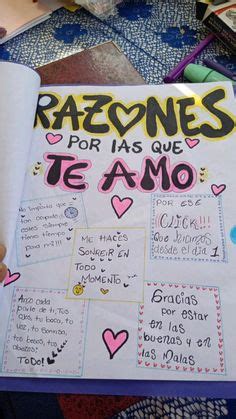 RAZONES
POR LAS QUE
TE AMO
No importa que
tan ocupado
estes siempre
tienes tiempo
para mi!!!
ME HACES
SONREIR EN
TODO
MOMENTO
POR ESE
¡CLICK!!!
Que hicimos
desde el dia 1
Amo cada
parte de ti, Tus
ojos, tu boca, tu
voz, tu sonrisa,
tus besos, tus
abrazos,
TODO!
Gracias
por estar
en las
buenas y en
las Malas